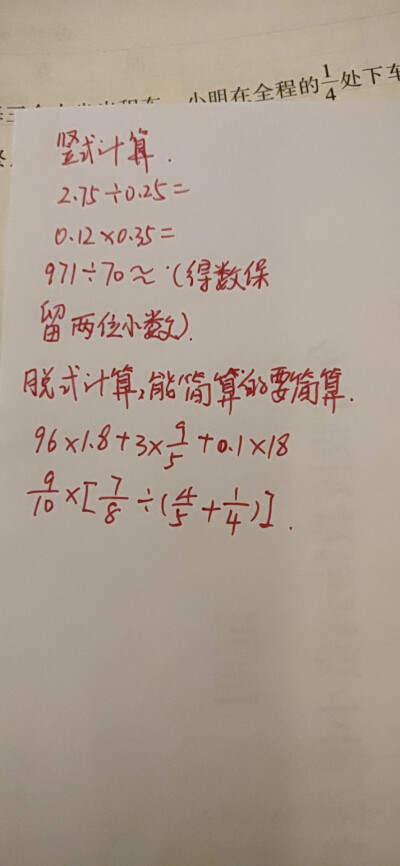 小明在全程的1/4处下车
竖式计算.
2.75÷0.25=
0.12×0.35=
971÷70≈(得数保
留两位小数).
脱式计算,能简算的要简算.
96×1.8+3×9/5+0.1×18
9/10×[7/8÷(4/5+1/4)].